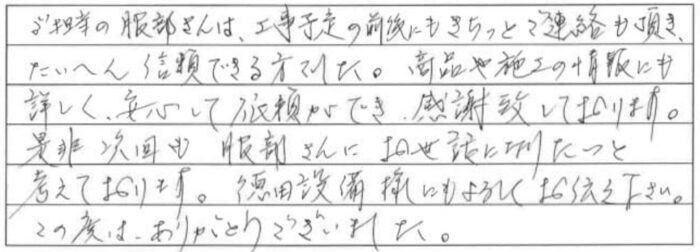 ご担当の服部さんは、工事予定の前後にもきちっとご連絡も頂き、
たいへん信頼できる方でした。商品や施工の情報にも
詳しく、安心して依頼ができ、感謝致しております。
是非次回も服部さんにお世話になりたいと
考えております。徳田設備様にもよろしくお伝え下さい。
この度は、ありがとうございました。